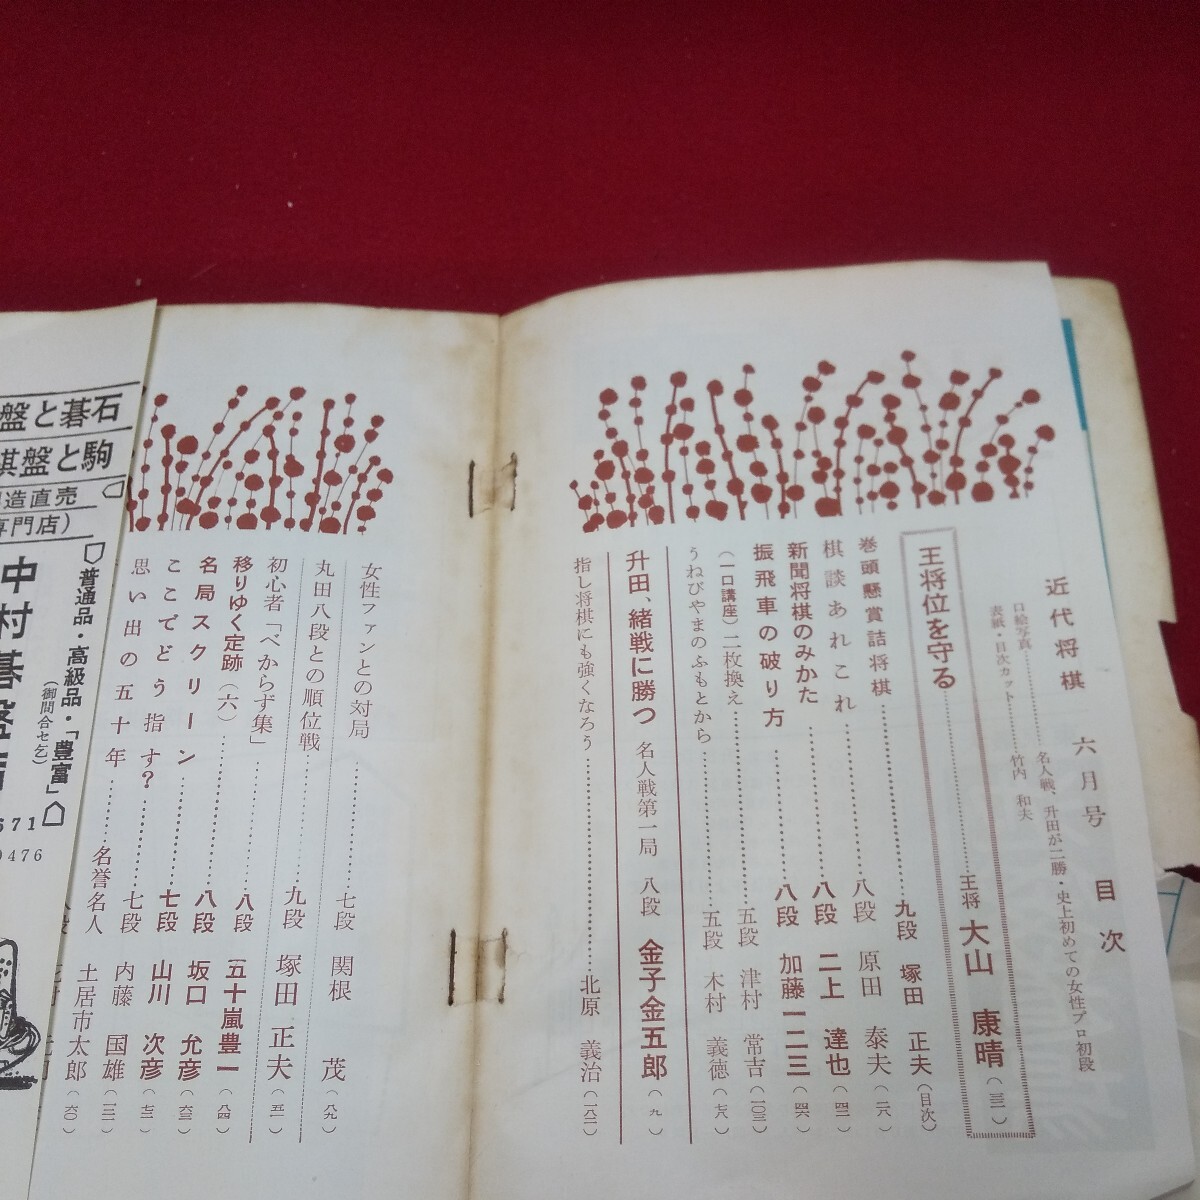 近代将棋 六月号 目次
口絵写真 名人戦、升田が二勝・史上初めての女性プロ初段
表紙・目次カット 竹内 和夫
王将位を守る 王将 大山 康晴（三二）
巻頭懸賞詰将棋 九段 塚田 正夫（目次）
棋談あれこれ 八段 原田 泰夫（二八）
新聞将棋のみかた 八段 二上 達也（四二）
振飛車の破り方 八段 加藤一二三（四六）
（一口講座）二枚換え 五段 津村 常吉（一〇三）
うねびやまのふもとから 五段 木村 義徳（七八）
升田、緒戦に勝つ 名人戦第一局 八段 金子金五郎（九）
指し将棋にも強くなろう 北原 義治（一八二）
女性ファンとの対局 七段 関根 茂（八九）
丸田八段との順位戦 九段 塚田 正夫（五一）
初心者「べからず集」
移りゆく定跡（六） 八段 五十嵐豊一（八四）
名局スクリーン 八段 坂口 允彦（六三）
ここでどう指す？ 七段 山川 次彦（七二）
七段 内藤 国雄（一三一）
思い出の五十年 名誉名人 土居市太郎（六〇）
盤と碁石
棋盤と駒
造直売
専門店）
普通品・高級品・「豊富」
（御問合セ乞）
中村碁盤店
571
0476